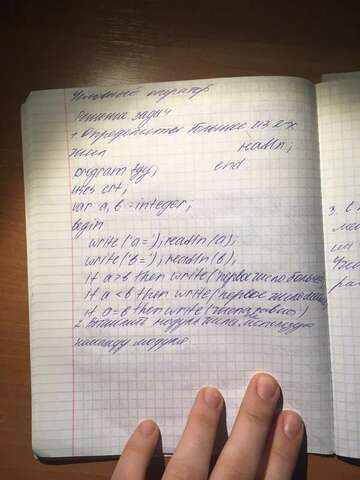 Условный оператор
Решение задач
1 Определить большее из 2-х
чисел readln;
program fgu; end
uses crt;
var a, b =integer;
begin
write ('a='); readln (a);
write ('b='); readln (b);
if a>b then write ('первое число больше
if a<b then write ('первое число мен
if a=b then write ('числа равны')
2. модуль числа используя
команду модуля
3. в